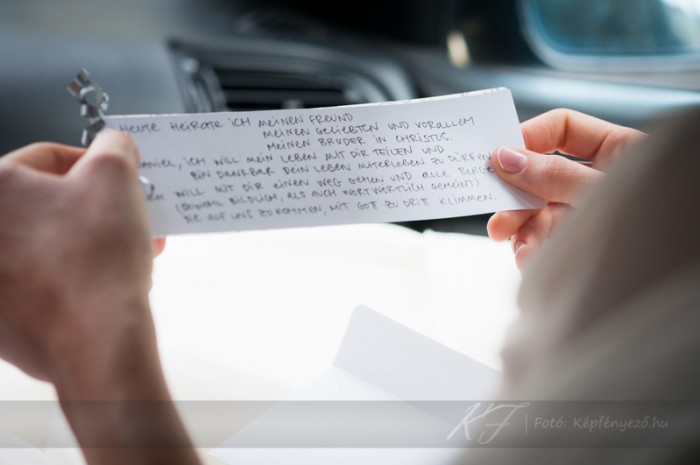 HEUTE HEIRATE ICH MEINEN FREUND
MEINEN GELIEBTEN UND VORALLEM
MEINEN BRUDER IN CHRISTUS.
ANIEL, ICH WILL MEIN LEBEN MIT DIR TEILEN UND
BIN DANKBAR DEIN LEBEN MITERLEBEN ZU DÜRFEN
WILL MIT DIR EINEN WEG GEHEN UND ALLE BERGE
(SOWOHL BILDLICH, ALS AUCH WORTWÖRTLICH GEMEINT)
DIE AUF UNS ZUKOMMEN, MIT GOTT ZU DRITT KLIMMEN.
KF | Fotó: Képfényező.hu